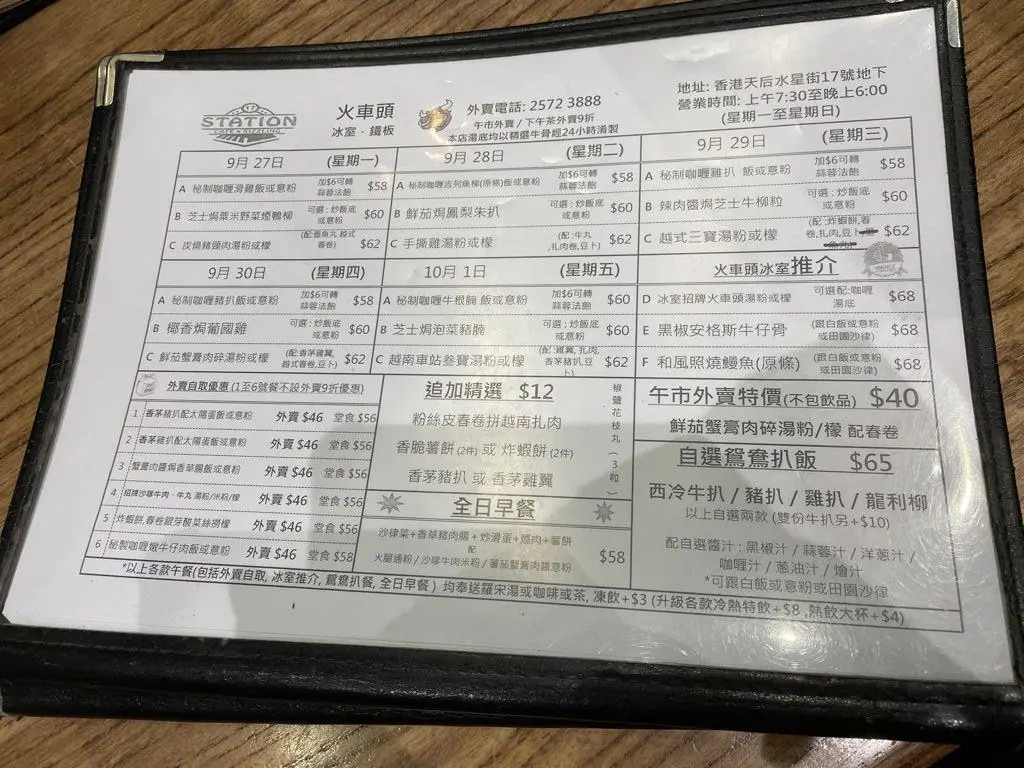 17
STATION
CAFE • SIZZLING
火車頭
冰室 · 鐵板
外賣電話: 2572 3888
午市外賣 / 下午茶外賣9折
本店湯底均以精選牛骨經24小時淆製
地址: 香港天后水星街17號地下
營業時間: 上午7:30至晚上6:00
(星期一至星期日)
9月 27日 (星期一)
A 秘制咖喱滑雞飯或意粉 加$6可轉蒜蓉法飽 $58
B 芝士焗粟米野菜煙鴨柳 可選 : 炒飯底或意粉 $60
C 炭燒豬頸肉湯粉或檬 (配:墨魚丸,越式春卷) $62
9月 28日 (星期二)
A 秘制咖喱吉列魚柳(原條)飯或意粉 加$6可轉蒜蓉法飽 $58
B 鮮茄焗鳳梨朱扒 可選 : 炒飯底或意粉 $60
C 手撕雞湯粉或檬 (配 : 牛丸,扎肉卷,豆卜) $62
9月 29日 (星期三)
A 秘制咖喱雞扒 飯或意粉 加$6可轉蒜蓉法飽 $58
B 辣肉醬焗芝士牛柳粒 可選 : 炒飯底或意粉 $60
C 越式三寶湯粉或檬 (配: 炸蝦餅,春卷,扎肉,豆卜 $62
9月 30日 (星期四)
A 秘制咖喱豬扒飯或意粉 加$6可轉蒜蓉法飽 $58
B 椰香焗葡國雞 可選 : 炒飯底或意粉 $60
C 鮮茄蟹膏肉碎湯粉或檬 (配:香茅雞翼,越式春卷,豆卜) $62
10月 1日 (星期五)
A 秘制咖喱牛根腩 飯或意粉 加$6可轉蒜蓉法飽 $60
B 芝士焗泡菜豬腩 可選 : 炒飯底或意粉 $60
C 越南車站叁寶湯粉或檬 (配: 雞翼, 扎肉,香茅豬扒,豆卜) $62
火車頭冰室推介
D 冰室招牌火車頭湯粉或檬 可選配:咖喱湯底 $68
E 黑椒安格斯牛仔骨 (跟白飯或意粉或田園沙律) $68
F 和風照燒鰻魚(原條) (跟白飯或意粉或田園沙律) $68
外賣自取優惠 (1至6號餐不設外賣9折優惠)
1 香茅豬扒配太陽蛋飯或意粉 外賣 $46 堂食 $56
2 香茅雞扒配太陽蛋飯或意粉 外賣 $46 堂食 $56
3 蟹膏肉醬焗香草腸飯或意粉 外賣 $46 堂食 $56
4 招牌沙嗲牛肉、牛丸 湯粉/米粉/檬 外賣 $46 堂食 $56
5 炸蝦餅,春卷銀芽酸菜絲撈檬 外賣 $46 堂食 $56
6 秘製咖喱嫩牛仔肉飯或意粉 外賣 $46 堂食 $58
追加精選 $12
粉絲皮春卷拼越南扎肉
香脆薯餅(2件) 或 炸蝦餅(2件)
香茅豬扒 或 香茅雞翼
椒鹽花枝丸(3粒)
全日早餐
沙律菜+香草豬肉腸+炒滑蛋+煙肉+薯餅
配
火腿通粉 / 沙嗲牛肉米粉 / 蕃茄蟹膏肉醬意粉
$58
午市外賣特價(不包飲品) $40
鮮茄蟹膏肉碎湯粉/檬 配春卷
自選鴛鴦扒飯 $65
西冷牛扒 / 豬扒 / 雞扒 / 龍利柳
以上自選兩款 (雙份牛扒另+$10)
配自選醬汁 : 黑椒汁 / 蒜蓉汁 / 洋蔥汁 /
咖喱汁 / 蔥油汁 / 燴汁
*可跟白飯或意粉或田園沙律
*以上各款午餐(包括外賣自取, 冰室推介, 鴛鴦扒餐, 全日早餐 ) 均奉送羅宋湯或咖啡或茶, 凍飲+$3 (升級各款冷熱特飲+$8 ,熱飲大杯+$4)